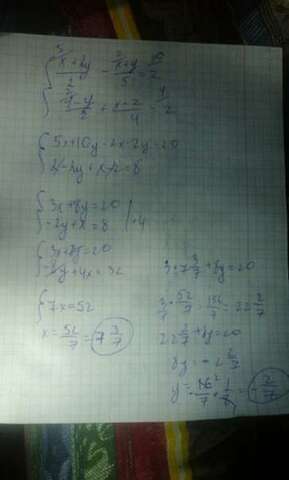 5 2 10
x+2y/2 - x+y/5 = 2
2 4
-y/2 + x-2/4 = 2
5x+10y-2x-2y=20
2-2y+x-2=8
3x+8y=20
-2y+x=8 | ·4
3x+8y=20
-8y+4x=32
7x=52
x=52/7=7 3/7
3·7 3/7+8y=20
3/7 · 52/7 = 156/7 = 22 2/7
22 2/7+8y=20
8y=-2 2/7
y=-16/7 · 1/8 = -2/7